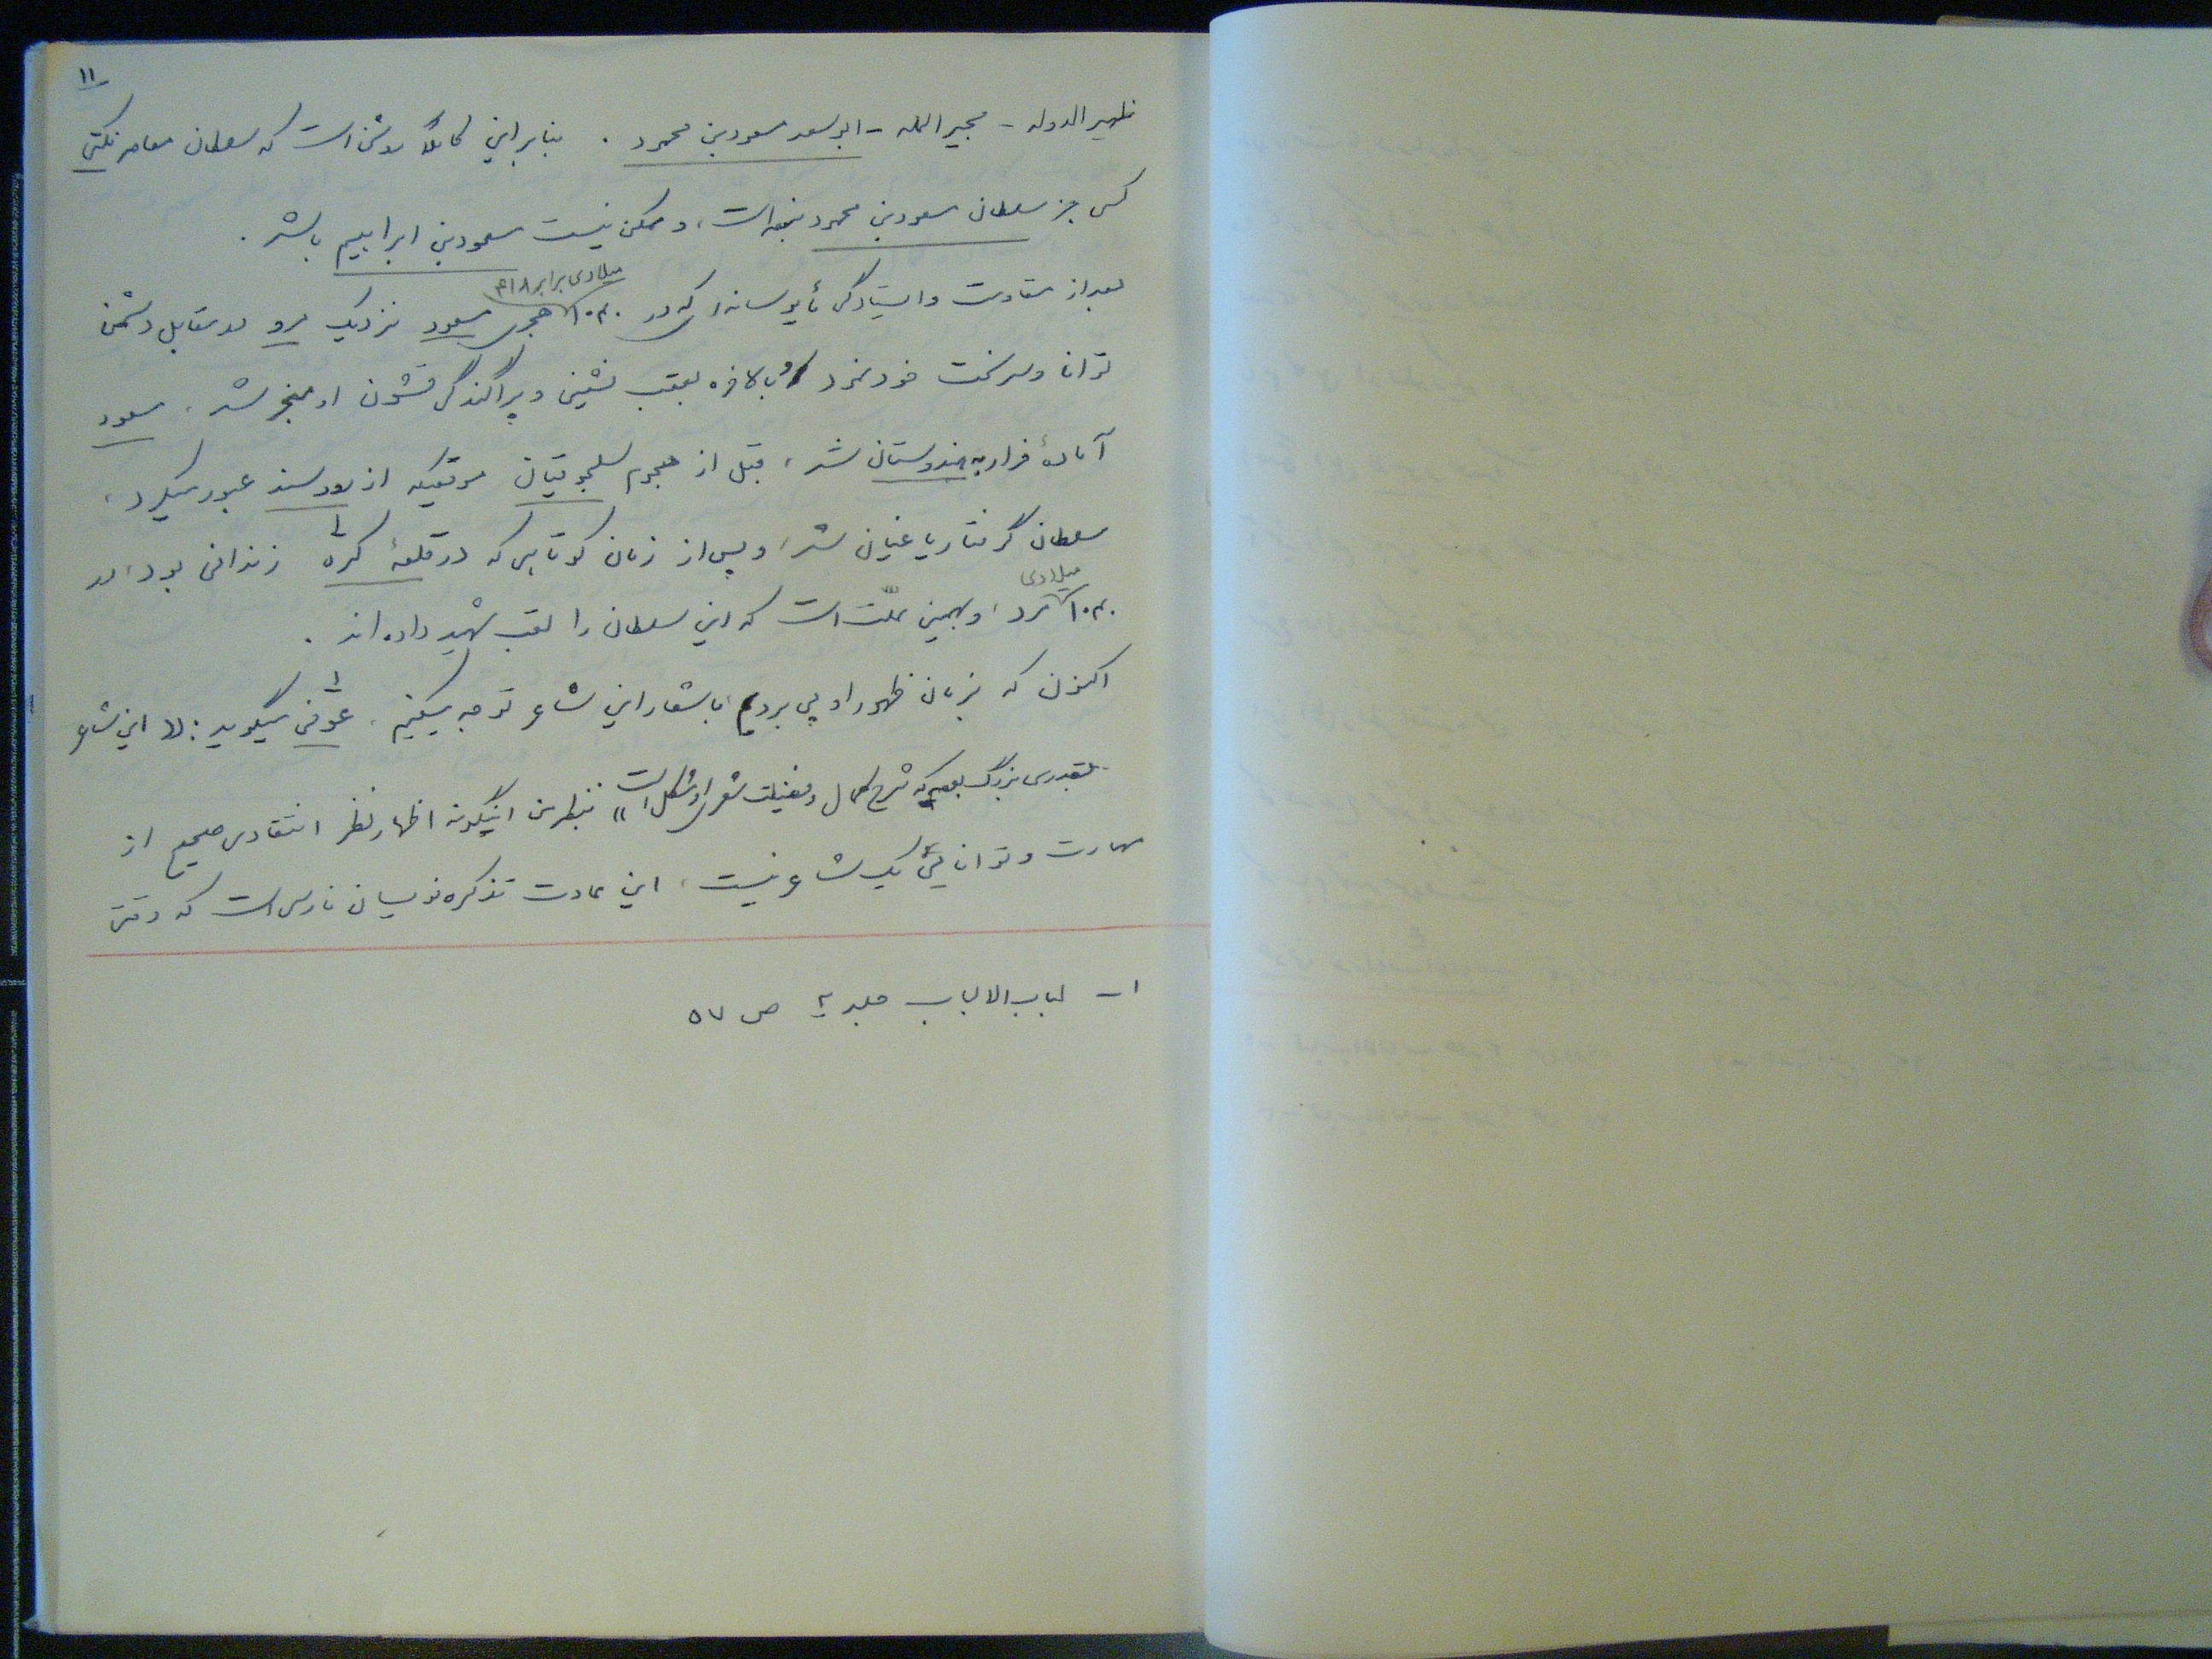 ۱۱
ظهیرالدوله - مجیرالمله - ابوسعد مسعودبن محمود . بنابراین کاملاً روشن است که سلطان معاصر نکتی
کسی جز سلطان مسعودبن محمود نبوده است، و ممکن نیست مسعودبن ابراهیم باشد .
میلادی برابر ۴۱۸
بعد از مقاومت و ایستادگی مأیوسانه‌ای که در ۱۰۴۰ هجری مسعود نزدیک مرو در مقابل دشمن
توانا و سرسخت خود نمود و بالاخره بعقب نشینی و پراکندگی قشون او منجر شد، مسعود
آمادهٔ فرار به هندوستان شد، قبل از هجوم سلجوقیان موقعیکه از رود سند عبور میکرد،
سلطان گرفتار یاغیان شد، و پس از زمان کوتاهی که در قلعهٔ کره ۱ زندانی بود، در
میلادی
۱۰۴۰ مرد، و بهمین علّت است که این سلطان را لقب شهید داده‌اند .
اکنون که بزمان ظهور او پی بردیم، باشعار این شاعر توجه میکنیم . عوفی ۱ میگوید : (( این شاعر
بقدری بزرگ بوده که شرح کمال و فضیلت شعری او مشکل است )) بنظر من اینگونه اظهار نظر انتقادی صحیح از
مهارت و توانایی یک شاعر نیست، این عادت تذکره نویسان فارسی است که وقتی
۱ - لباب الالباب جلد ۲ ص ۵۷